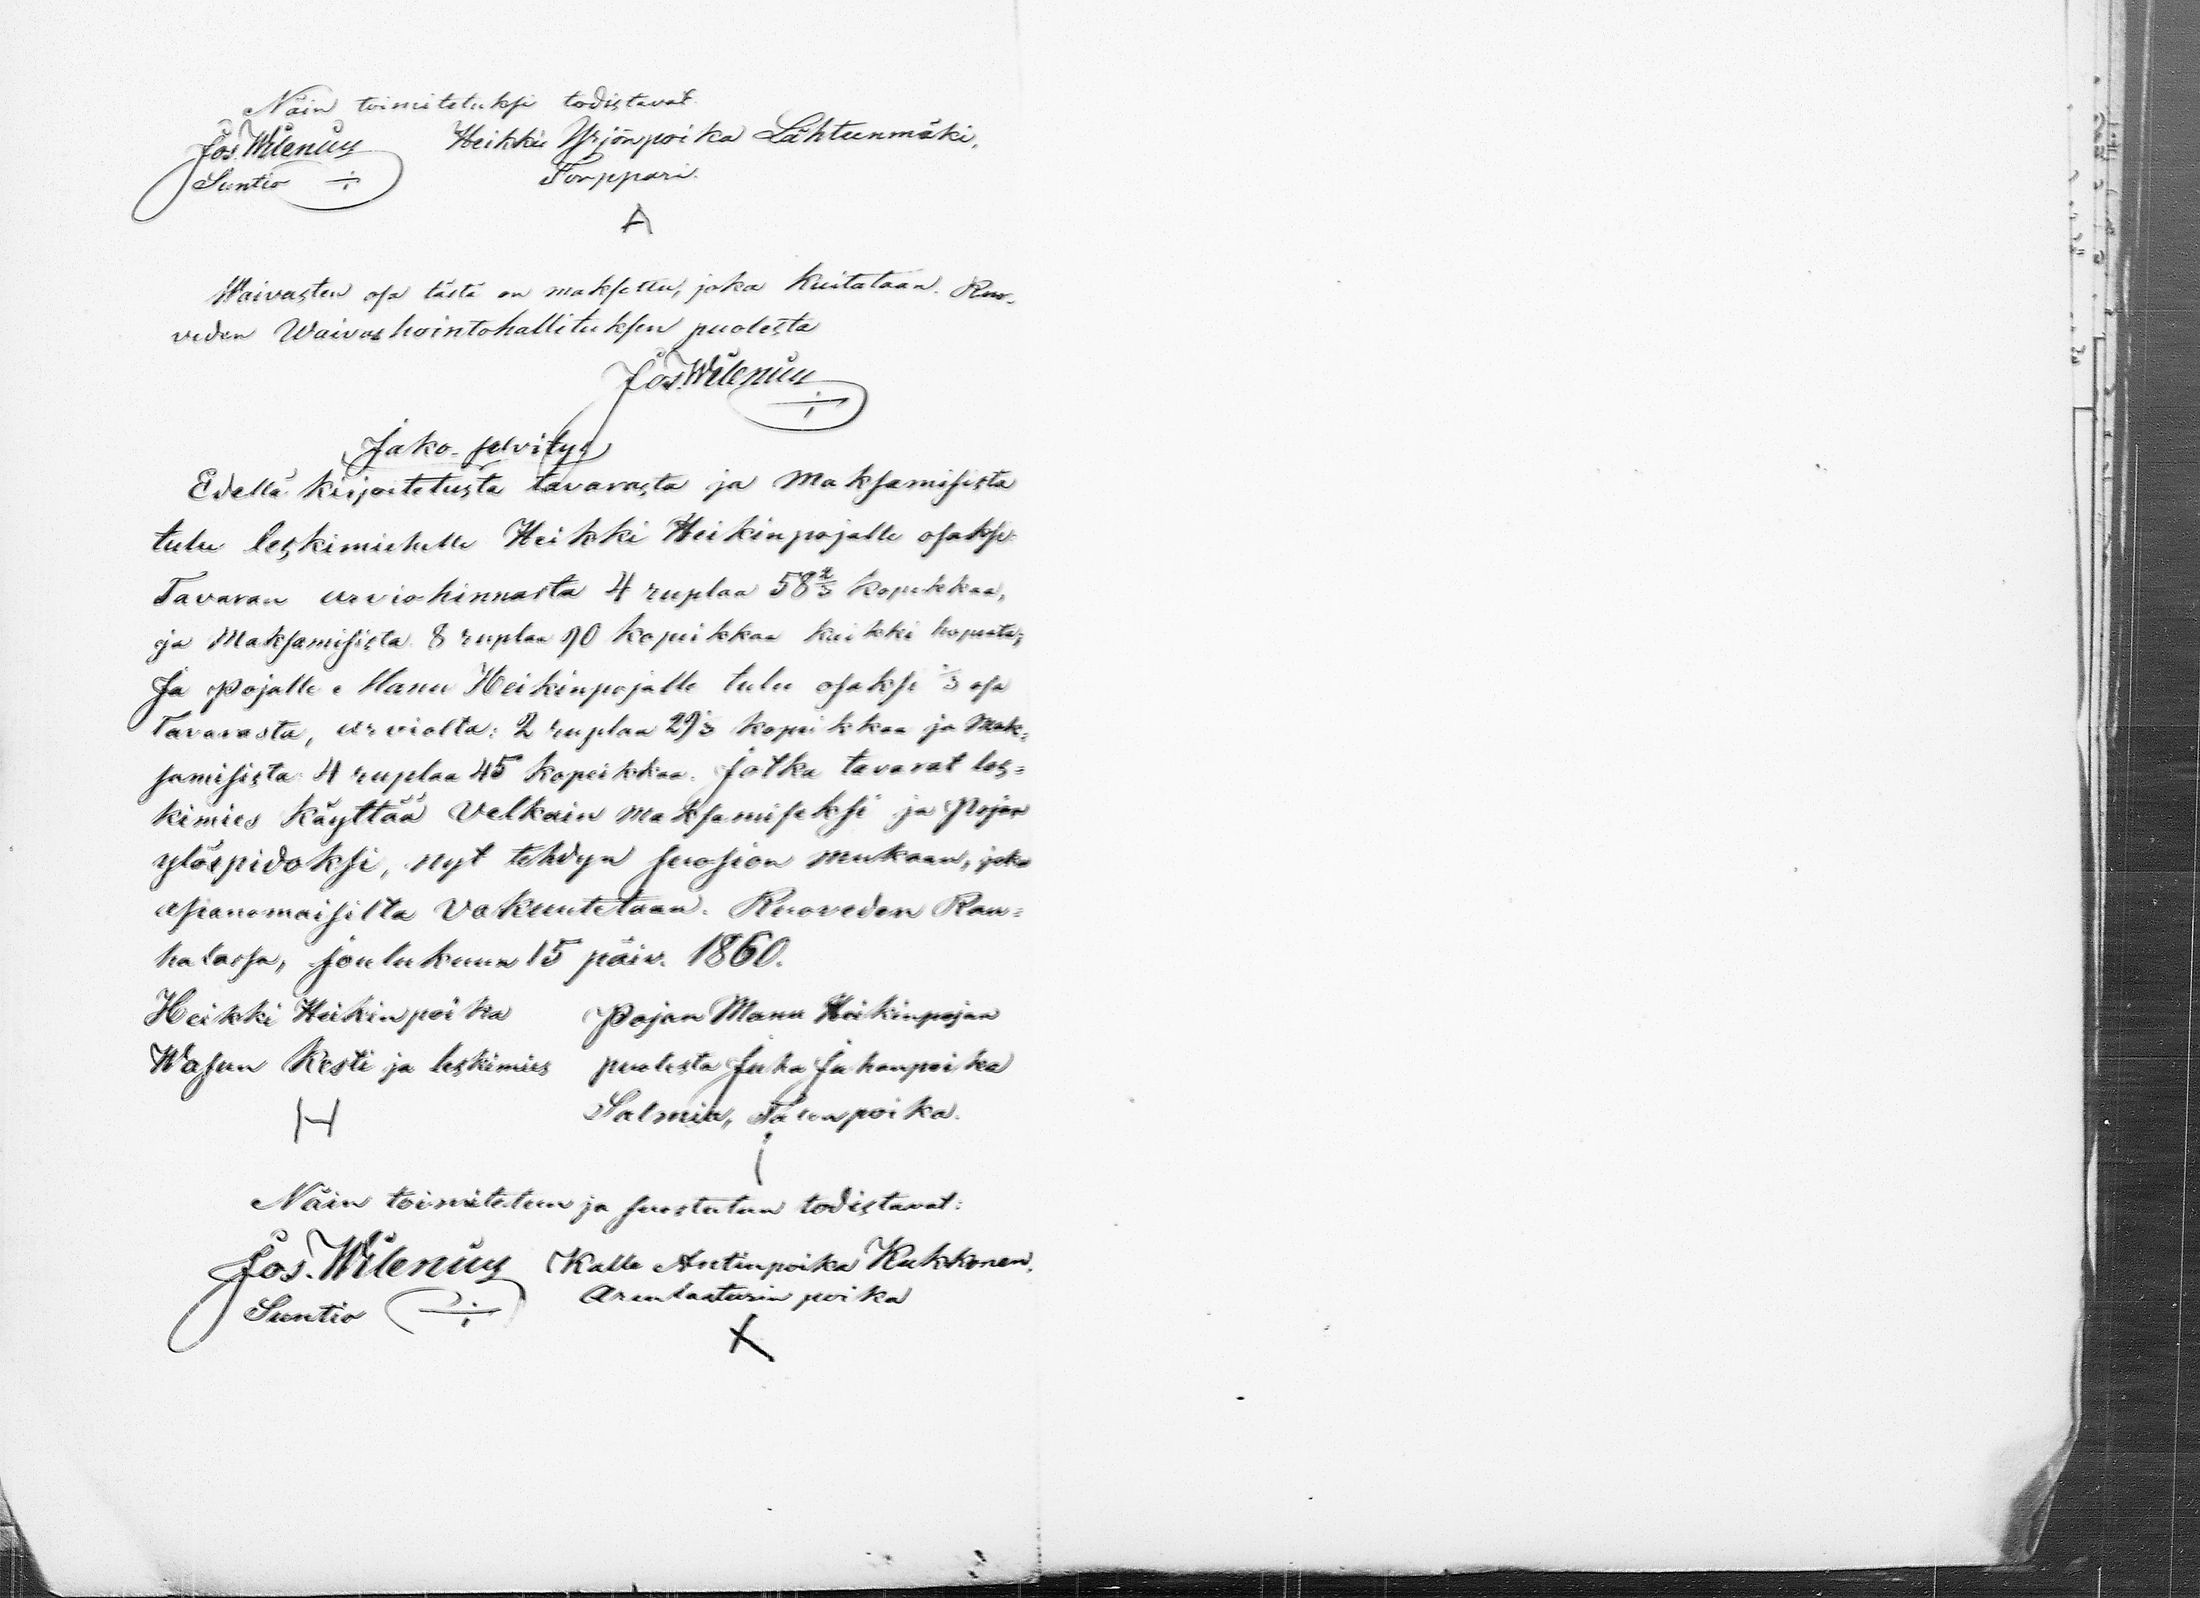 Näin toimitetuksi todistavat
Jos. Wilenius Heikki Yrjönpoika Lähteenmäki,
Suntio Torppari.
A
Waivasten osa tästä on maksettu, joka kuitataan. Ruo-
veden Waivashointohallituksen puolesta
Jos. Wilenius
Jako-selvitys
Edellä kirjoitetusta tavarasta ja Maksamisista
tulee leskimiehelle Heikki Heikinpojalle osaksi
Tavaran arviohinnasta 4 ruplaa 58 2/3 kopeikkaa,
ja Maksamisista 8 ruplaa 90 kopeikkaa kaikki hopeata;
Ja pojalle Manu Heikinpojalle tulee osaksi 1/3 osa
Tavarasta, arviolta: 2 ruplaa 29 1/3 kopeikkaa ja Mak=
samisista 4 ruplaa 45 kopeikkaa. Jotka tavarat les=
kimies käyttää Velkain maksamiseksi ja Pojan
ylöspidoksi, nyt tehdyn suosion mukaan, joka
asianomaisilta vakuutetaan. Ruoveden Rau=
halassa, Joulukuun 15 päiv. 1860.
Heikki Heikinpoika Pojan Manu Heikinpojan
Kesti ja leskimies puolesta Juha Juhanpoika
H Salmia, Talonpoika.
Näin toimitetun ja suostutun todistavat:
Jos. Wilenius Kalle Antinpoika Kukkonen,
Suntio Arentaaturin poika
X